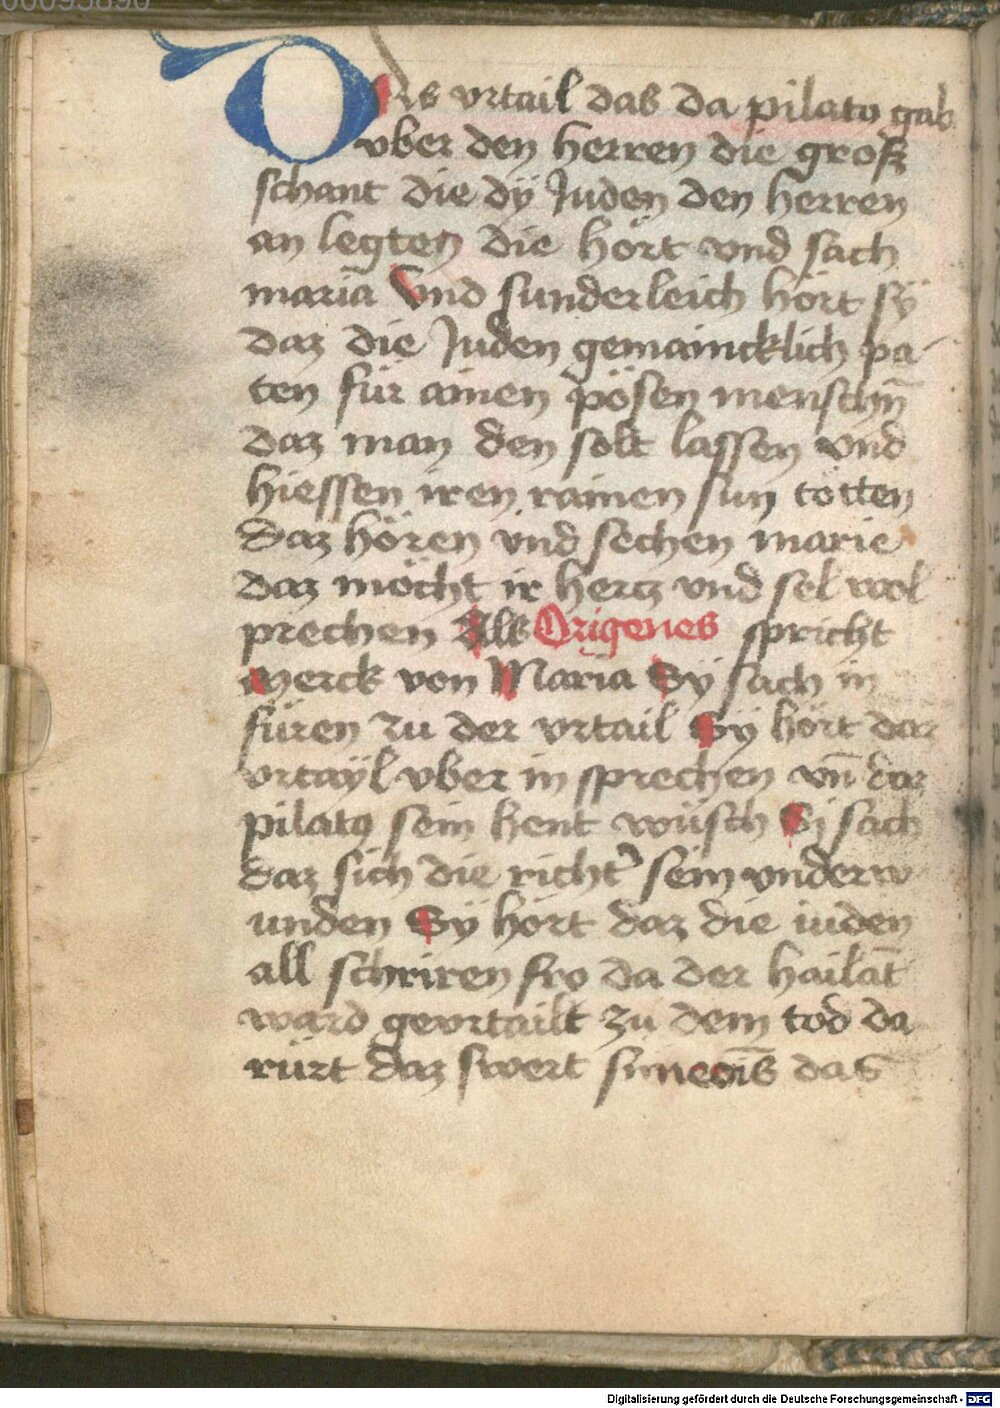 00095890
Das vrtail das da pilatus gab
vber den herren die groſz
schant die dÿ Juden den herren
an legten die hört vnd sach
maria Vnd sunderleich hört sÿ
daz die Juden gemaincklich pa-
ten für ainen pösen menschn̄
daz man den solt lassen vnd
hiessen iren rainen sun tötten
daz hören vnd sechen marie
daz möcht ir hertz vnd sel wol
prechen Als Origenes spricht
Merck von Maria Sÿ sach in
füren zu der vrtail Sÿ hört daz
vrtaÿl vber in sprechen vn̄ daz
pilatus sein hent wüsch Sÿ sach
daz sich die richt' sein vnderw
unden Sÿ hört daz die iuden
all schriren fro da der hailāt
ward geurtailt zu dem tod da
rürt daz swert simeōis das
Digitalisierung gefördert durch die Deutsche Forschungsgemeinschaft - DFG